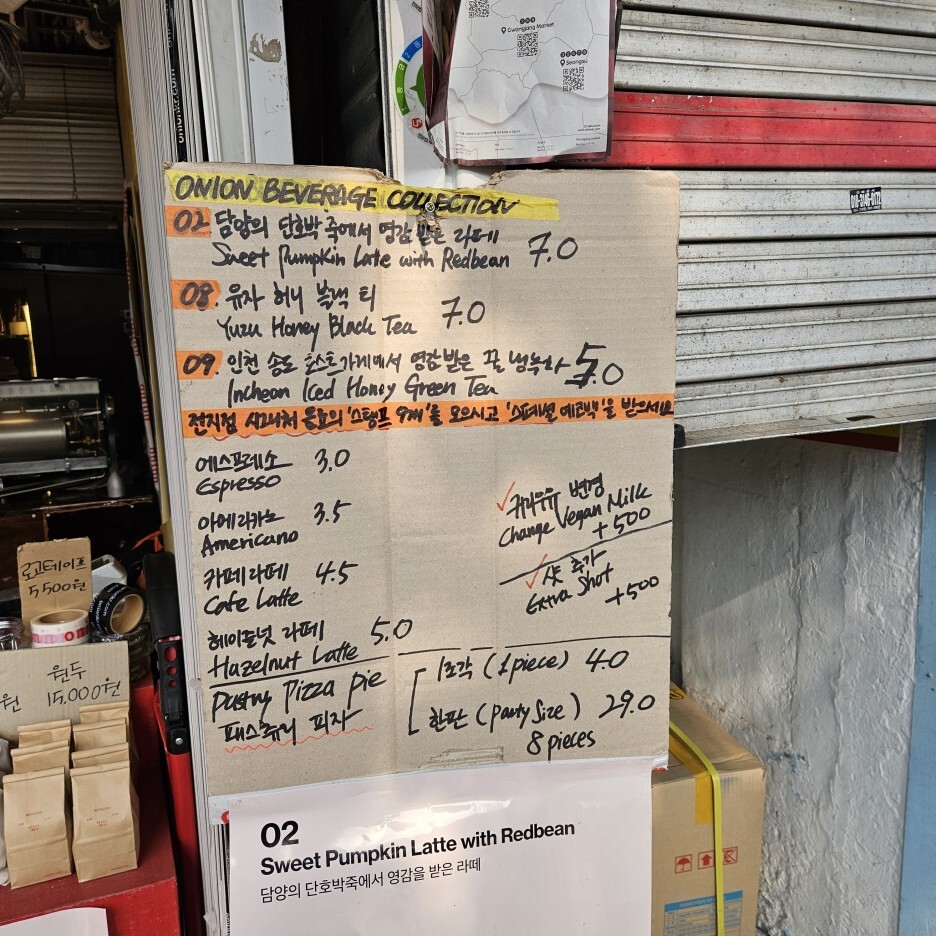 Gwangjang Market
Seongsu
onionkr.com
ONION BEVERAGE COLLECTION
02. 담양의 단호박 죽에서 영감 받은 라떼
Sweet Pumpkin Latte with Redbean 7.0
08. 유자 허니 블랙 티
Yuzu Honey Black Tea 7.0
09. 인천 송도 호스트가게에서 영감받은 꿀 냉녹차 5.0
Incheon Iced Honey Green Tea
전지점 시그니처 음료의 '스탬프 9개'를 모으시고 '스페셜 에코백'을 받으세요
에스프레소 3.0
Espresso
아메리카노 3.5
Americano
카페라떼 4.5
Cafe Latte
헤이즐넛 라떼 5.0
Hazelnut Latte
✓귀리우유 변경
Change Vegan Milk
+500
✓샷 추가
Extra Shot
+500
Pastry Pizza pie
패스츄리 피자
1조각 (1piece) 4.0
한판 (party Size) 29.0
8 pieces
로고테이프
5,500원
원두
원 15,000원
02
Sweet Pumpkin Latte with Redbean
담양의 단호박죽에서 영감을 받은 라떼